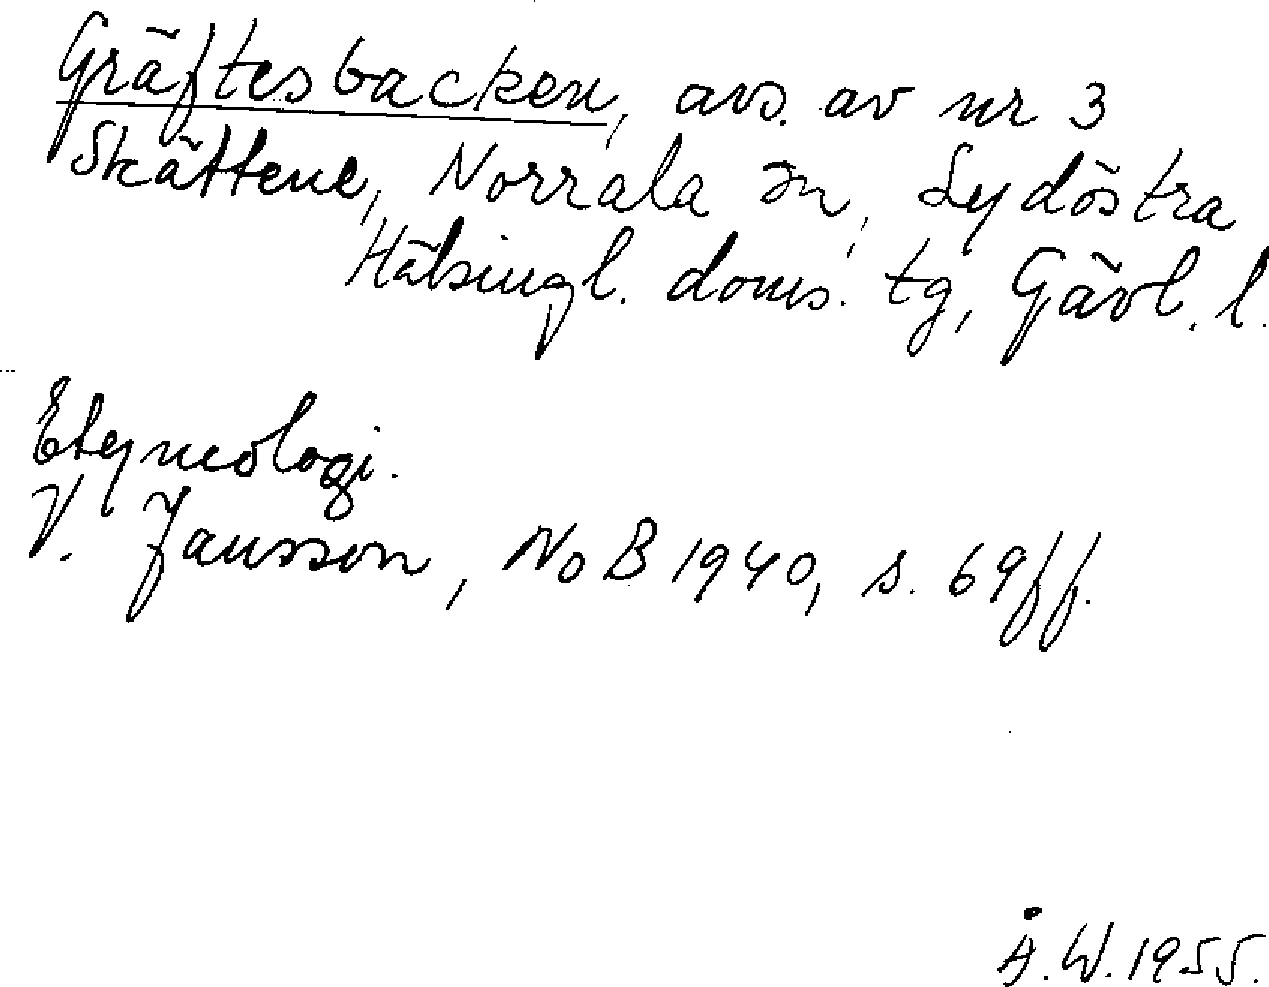 Gräftesbacken, avs. av nr 3
Skättene, Norrala sn, Sydöstra
Hälsingl. doms. tg, Gävl. l.
Etymologi.
V. Jansson, NoB 1940, s. 69ff.
Å.W. 1955.